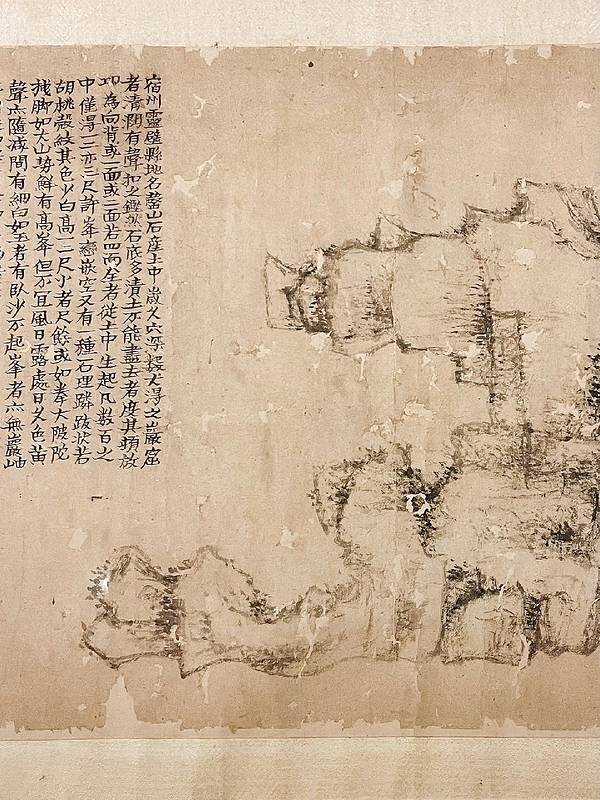 宿州靈璧縣地名磬山石產土中歲久穴深數丈得之巖窟
者清潤有聲扣之鏗然石底多清土不能盡去者度其頓放
即為向背或一面或二面若四面全者從土中生起凡數百之
中僅得一二亦三尺許峯巒嵌空又有一種石理膦跛狀若
胡桃殼紋其色少白高一二尺小者尺餘或如拳大陂陀
拽脚如大山勢鮮有高峯但不宜風日露處日久色黃
聲亦隨減間有細白如玉者有臥沙不起峯者亦無巖岫